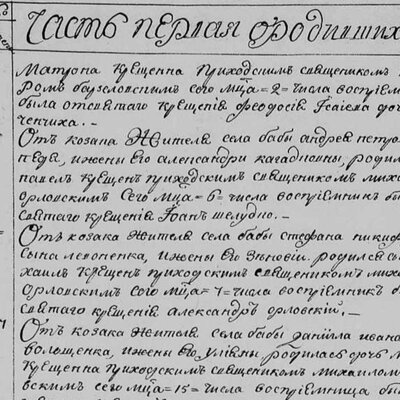 Часть первая ѡ родившихс
Матрона крещенна приходскимъ священикомъ
Ромъ сего мца = 2 = числа воспріем
была отсвятаго крещенія феодосія Ісаіева доч
ченчиха. –
Отъ козака жителя села бабы андрея петро
жены его александри родил
павелъ крещенъ приходскимъ священикомъ миха
орловскимъ сего мца = 6 = числа воспріемникъ б
святаго крещенія Іоанъ шелудко. –
Отъ козака жителя села бабы стефана никиф
сына левоненка, ижены его Зѣновіи родился сы
хаилъ крещенъ приходскимъ священикомъ миха
Орловскимъ сего мца = 7 = числа воспріемникъ б
святаго крещенія александръ орловскій. –
Отъ козака жителя села бабы даніила ивана
волощенка, ижены его уліяны родилась дочь м
крещенна приходскимъ священикомъ михаилом
вскимъ сего мца = 15 = числа воспріемница бы